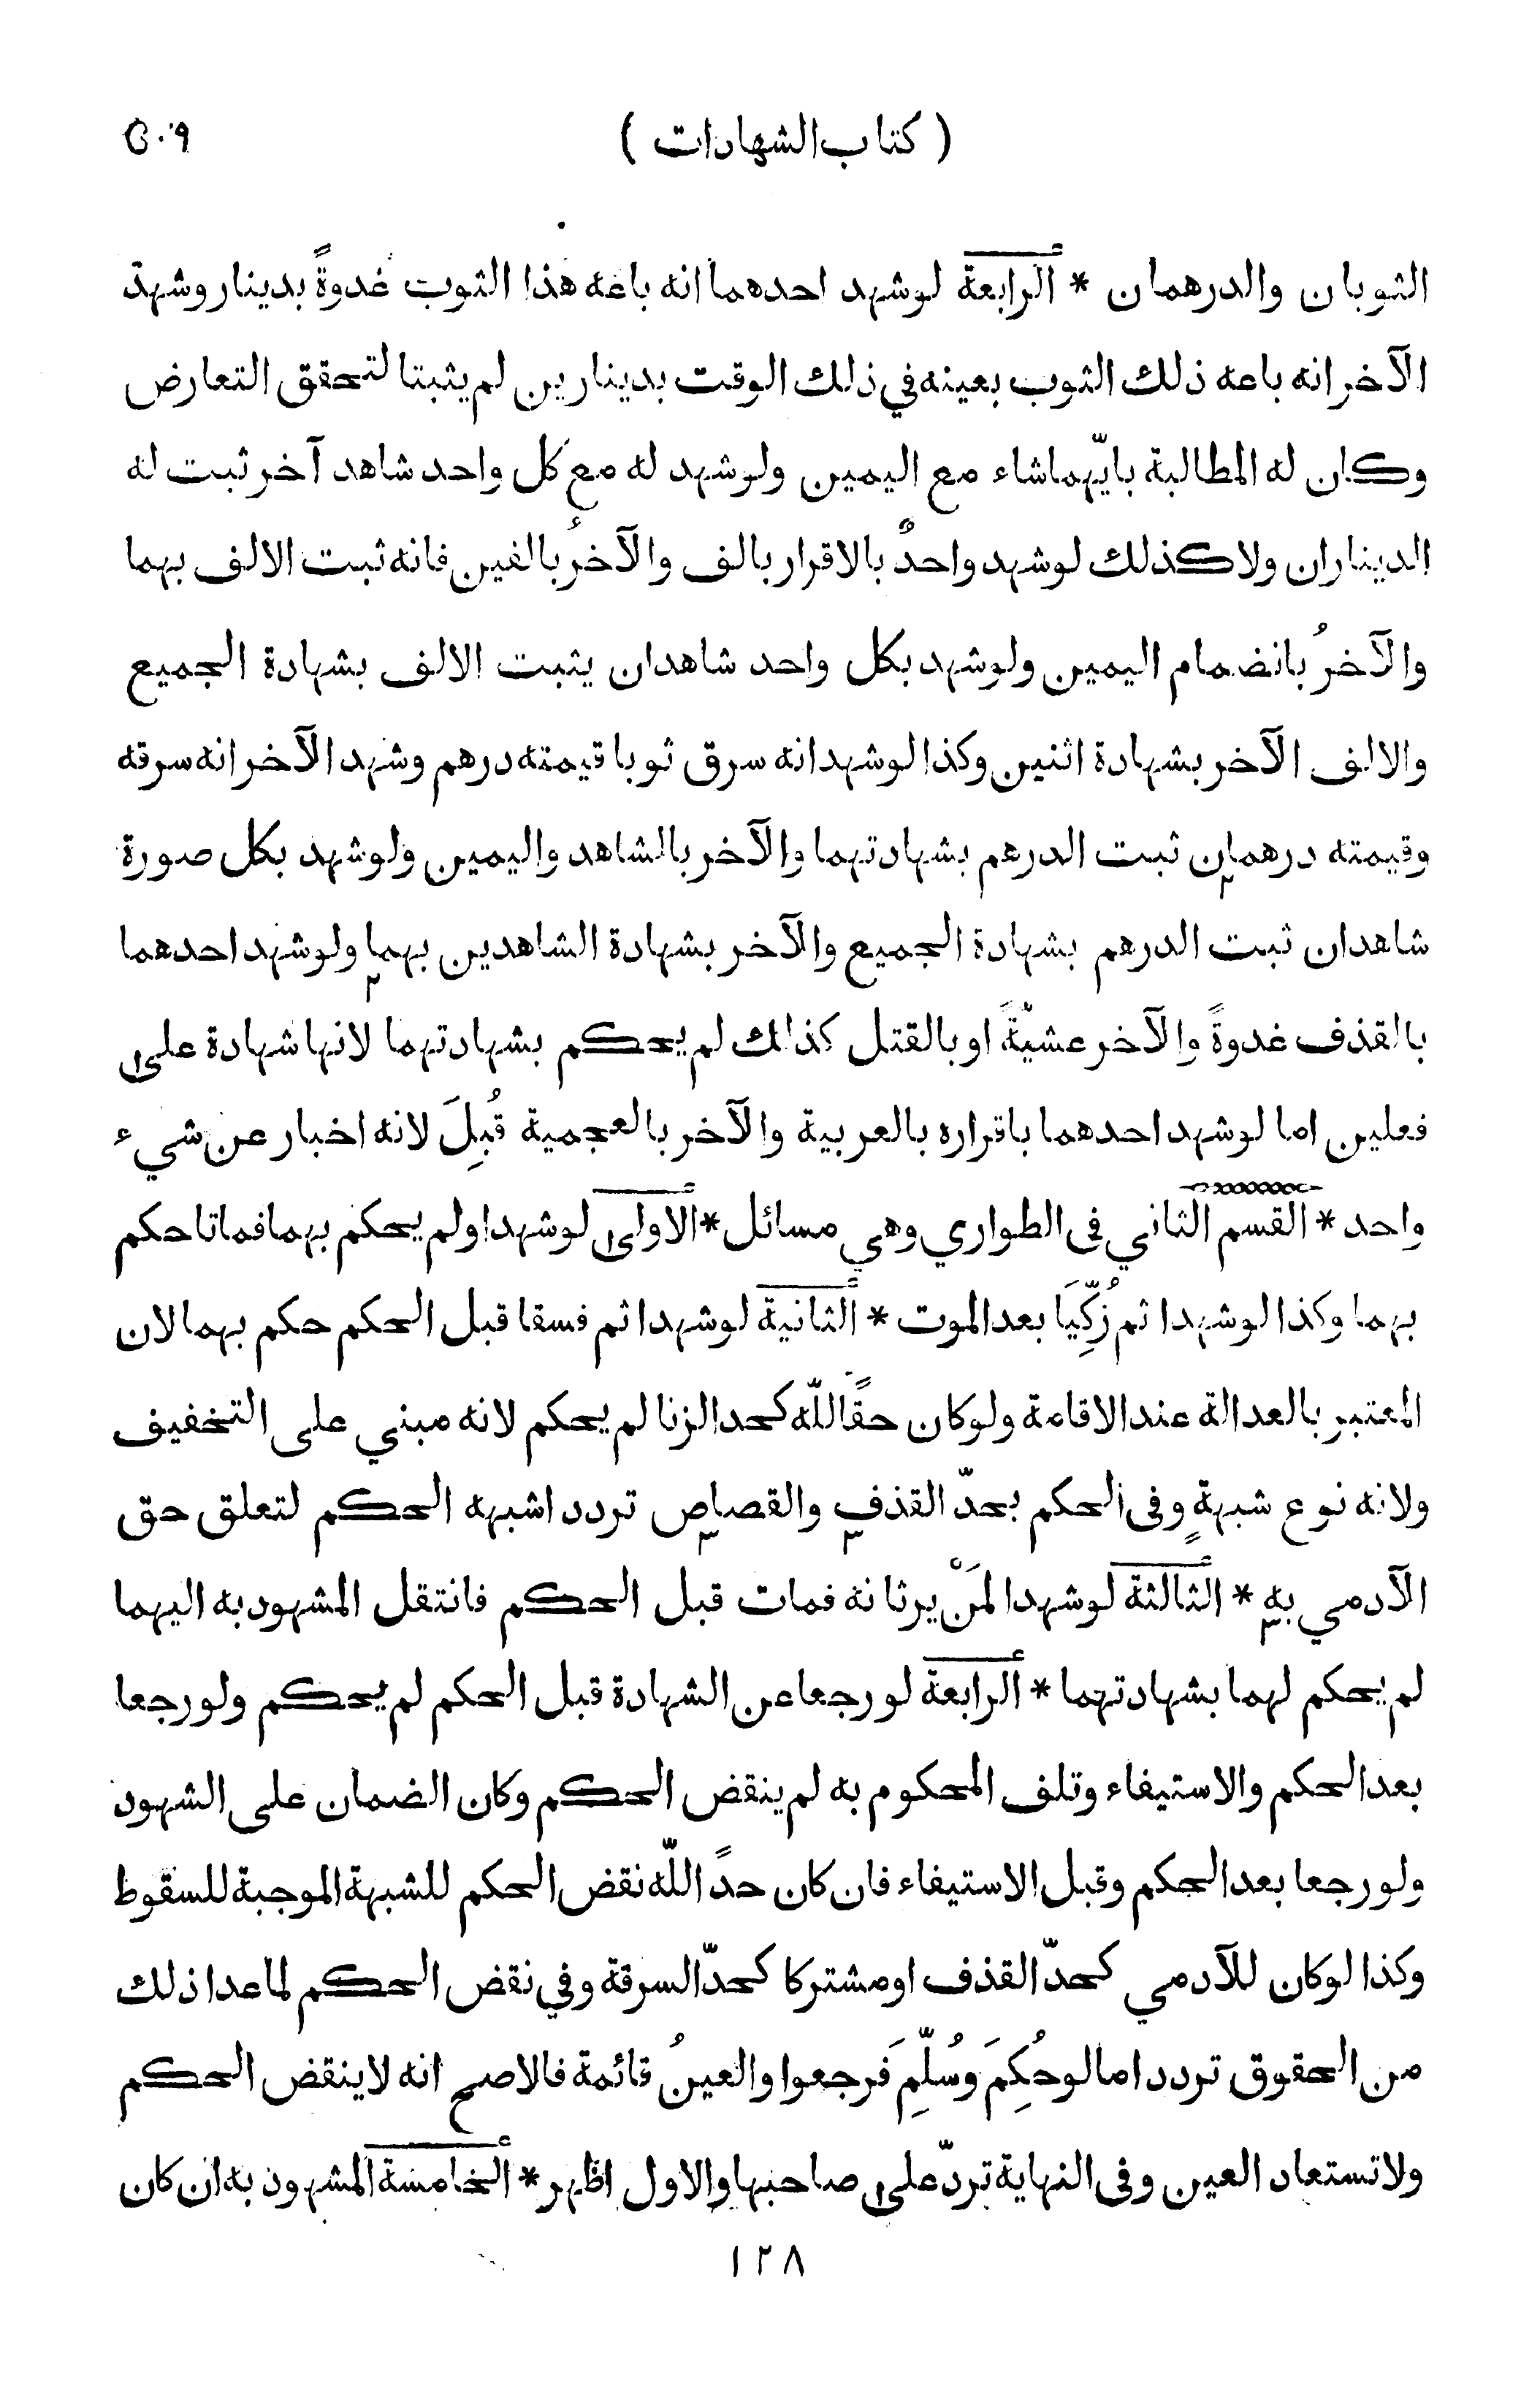 ( كتاب الشهادات ) ٥٠٩
الثوبان والدرهمان * الرابعة لوشهد احدهما انه باعه هذا الثوب غدوةً بدينار وشهد
الآخر انه باعه ذلك الثوب بعينه في ذلك الوقت بدينارين لم يثبتا لتحقق التعارض
وكان له المطالبة بايّهما شاء مع اليمين ولوشهد له مع كل واحد شاهد آخر ثبت له
الديناران ولا كذلك لوشهد واحدٌ بالاقرار بالف والآخرُ بالفين فانه ثبت الالف بهما
والآخرُ بانضمام اليمين ولوشهد بكل واحد شاهدان يثبت الالف بشهادة الجميع
والالف الآخر بشهادة اثنين وكذا لوشهد انه سرق ثوبا قيمته درهم وشهد الآخر انه سرقه
وقيمته درهمان ثبت الدرهم بشهادتهما والآخر بالشاهد واليمين ولوشهد بكل صورة
شاهدان ثبت الدرهم بشهادة الجميع والآخر بشهادة الشاهدين بهما ولوشهد احدهما
بالقذف غدوةً والآخر عشيّةً او بالقتل كذلك لم يحكم بشهادتهما لانها شهادة على
فعلين اما لوشهد احدهما باقراره بالعربية والآخر بالعجمية قُبِلَ لانه اخبار عن شيء
واحد * القسم الثاني في الطواري وهي مسائل * الاولى لوشهدا ولم يحكم بهما فماتا حكم
بهما وكذا لوشهدا ثم زُكِّيَا بعد الموت * الثانية لوشهدا ثم فسقا قبل الحكم حكم بهما لان
المعتبر بالعدالة عند الاقامة ولوكان حقًا للّه كحد الزنا لم يحكم لانه مبني على التخفيف
ولانه نوع شبهةٍ وفى الحكم بحدّ القذف والقصاص تردد اشبهه الحكم لتعلق حق
الآدمي به * الثالثة لوشهدا لمَنْ يرثانه فمات قبل الحكم فانتقل المشهود به اليهما
لم يحكم لهما بشهادتهما * الرابعة لو رجعا عن الشهادة قبل الحكم لم يحكم ولو رجعا
بعد الحكم والاستيفاء وتلف المحكوم به لم ينقض الحكم وكان الضمان على الشهود
ولو رجعا بعد الحكم وقبل الاستيفاء فان كان حدًا للّه نقض الحكم للشبهة الموجبة للسقوط
وكذا لوكان للآدمي كحدّ القذف او مشتركا كحدّ السرقة وفي نقض الحكم لما عدا ذلك
من الحقوق تردد اما لوحُكِمَ وَسُلِّمَ فَرجعوا والعينُ قائمة فالاصح انه لاينقض الحكم
ولا تستعاد العين وفى النهاية تردّ على صاحبها والاول اظهر * الخامسة المشهود به ان كان
١٢٨